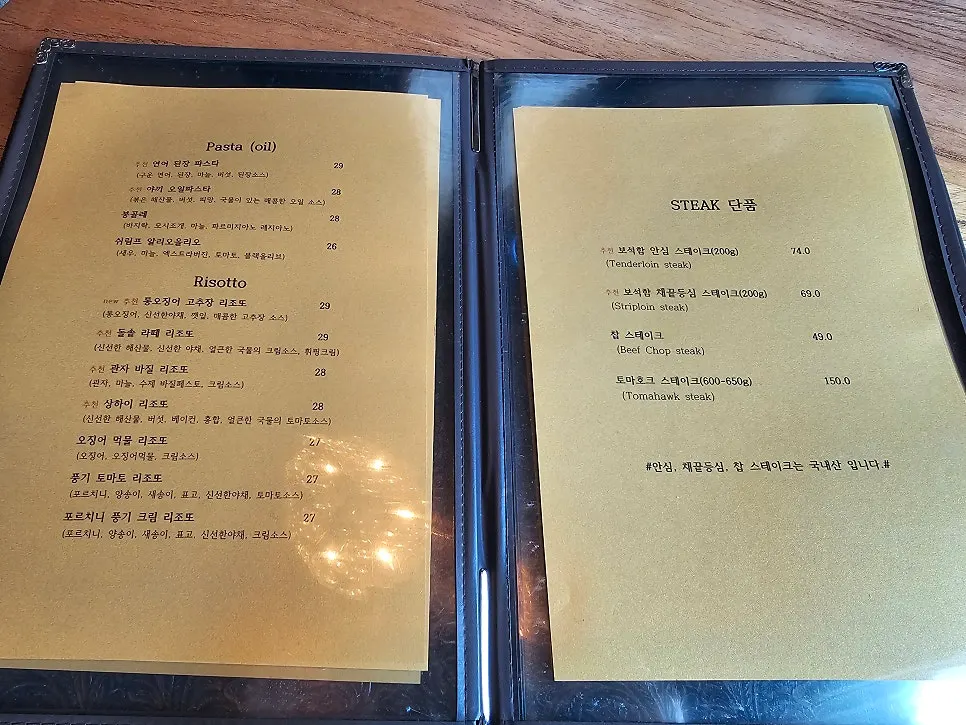 Pasta (oil)
추천 연어 된장 파스타 29
(구운 연어, 된장, 마늘, 버섯, 된장소스)
추천 야끼 오일파스타 28
(볶은 해산물, 버섯, 피망, 국물이 있는 매콤한 오일 소스)
봉골레 28
(바지락, 모시조개, 마늘, 파르미지아노 레지아노)
쉬림프 알리오올리오 26
(새우, 마늘, 엑스트라버진, 토마토, 블랙올리브)
Risotto
new 추천 통오징어 고추장 리조또 29
(통오징어, 신선한야채, 깻잎, 매콤한 고추장 소스)
추천 돌솥 라떼 리조또 29
(신선한 해산물, 신선한 야채, 얼큰한 국물의 크림소스, 휘핑크림)
추천 관자 바질 리조또 28
(관자, 마늘, 수제 바질페스토, 크림소스)
추천 상하이 리조또 28
(신선한 해산물, 버섯, 베이컨, 홍합, 얼큰한 국물의 토마토소스)
오징어 먹물 리조또 27
(오징어, 오징어먹물, 크림소스)
풍기 토마토 리조또 27
(포르치니, 양송이, 새송이, 표고, 신선한야채, 토마토소스)
포르치니 풍기 크림 리조또 27
(포르치니, 양송이, 새송이, 표고, 신선한야채, 크림소스)
STEAK 단품
추천 보석함 안심 스테이크(200g) 74.0
(Tenderloin steak)
추천 보석함 채끝등심 스테이크(200g) 69.0
(Striploin steak)
찹 스테이크 49.0
(Beef Chop steak)
토마호크 스테이크(600-650g) 150.0
(Tomahawk steak)
#안심, 채끝등심, 찹 스테이크는 국내산 입니다.#